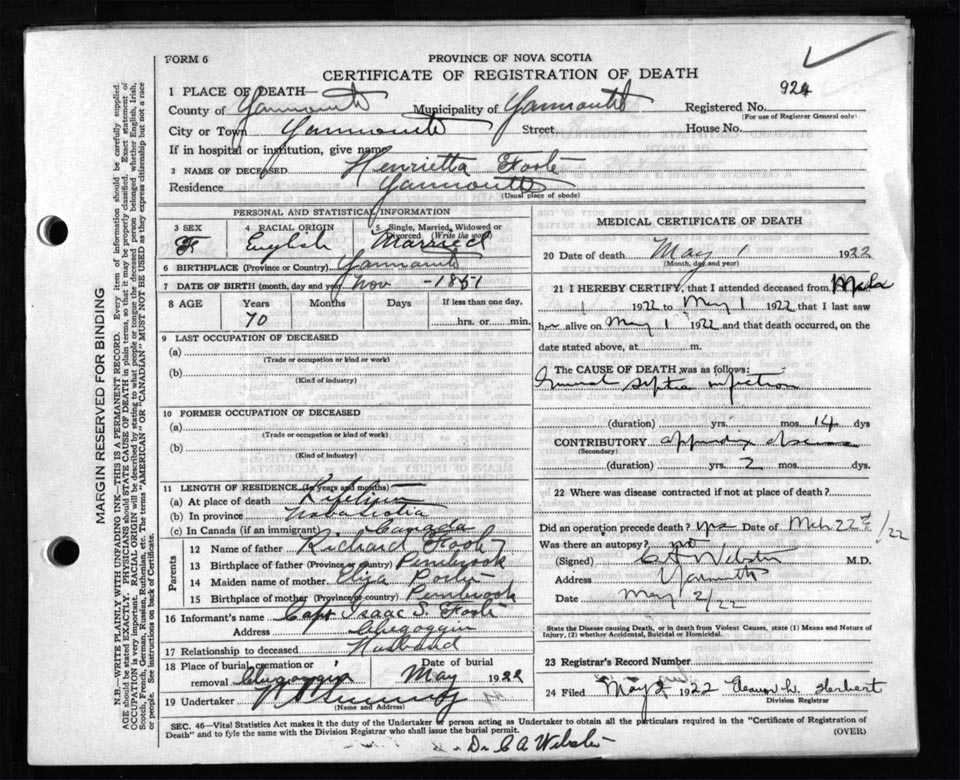 FORM 6
PROVINCE OF NOVA SCOTIA
CERTIFICATE OF REGISTRATION OF DEATH
924
1 PLACE OF DEATH—
County of Yarmouth Municipality of Yarmouth Registered No.
(For use of Registrar General only)
City or Town Yarmouth Street House No.
If in hospital or institution, give name
2 NAME OF DECEASED Henrietta Foote
Residence Yarmouth
(Usual place of abode)
PERSONAL AND STATISTICAL INFORMATION
3 SEX 4 RACIAL ORIGIN 5 Single, Married, Widowed or Divorced (Write the word)
F English Married
6 BIRTHPLACE (Province or Country) Yarmouth
7 DATE OF BIRTH (month, day and year) Nov - 1851
8 AGE Years Months Days If less than one day,
70 hrs. or min.
9 LAST OCCUPATION OF DECEASED
(a)
(Trade or occupation or kind or work)
(b)
(Kind of industry)
10 FORMER OCCUPATION OF DECEASED
(a)
(Trade or occupation or kind of work)
(b)
(Kind of industry)
11 LENGTH OF RESIDENCE (In years and months)
(a) At place of death Lifetime
(b) In province Nova Scotia
(c) In Canada (if an immigrant) Canada
Parents
12 Name of father Richard Foote
13 Birthplace of father (Province or country) Pembrook
14 Maiden name of mother Eliza Porter
15 Birthplace of mother (Province or country) Pembrook
16 Informant's name Capt Isaac S. Foote
Address Chegoggin
17 Relationship to deceased Husband
18 Place of burial, cremation or removal Chegoggin Date of burial May 1922
19 Undertaker
(Name and Address)
MEDICAL CERTIFICATE OF DEATH
20 Date of death May 1 1922
(Month, day and year)
21 I HEREBY CERTIFY, that I attended deceased from Mch
1 1922 to May 1 1922 that I last saw
her alive on May 1 1922 and that death occurred, on
the date stated above, at m.
The CAUSE OF DEATH was as follows:
General septic infection
(duration) yrs. mos. 14 dys
CONTRIBUTORY appendix abscess
(Secondary)
(duration) yrs. 2 mos. dys.
22 Where was disease contracted if not at place of death?
Did an operation precede death? yes Date of Mch 22nd/22
Was there an autopsy? no
(Signed) CA Webster M.D.
Address Yarmouth
Date May 2/22
State the Disease causing Death, or in death from Violent Causes, state (1) Means and Nature of Injury, (2) whether Accidental, Suicidal or Homicidal.
23 Registrar's Record Number
24 Filed May 2 1922 Eleanor L. Herbert
Division Registrar
SEC. 46—Vital Statistics Act makes it the duty of the Undertaker or person acting as Undertaker to obtain all the particulars required in the "Certificate of Registration of
Death" and to fyle the same with the Division Registrar who shall issue the burial permit. (OVER)
Dr C A Webster
MARGIN RESERVED FOR BINDING
N.B.—WRITE PLAINLY WITH UNFADING INK—THIS IS A PERMANENT RECORD. Every item of information should be carefully supplied.
AGE should be stated EXACTLY. PHYSICIANS should STATE CAUSE OF DEATH in plain terms, so that it may be properly classified. Exact statement of
OCCUPATION is very important. RACIAL ORIGIN will be described by stating to what people or tongue the deceased person belonged whether English, Irish,
Scotch, French, German, Russian, Ruthenian, etc. The terms "AMERICAN" or "CANADIAN" MUST NOT BE USED as they express citizenship but not a race
or people. See instructions on back of Certificate.